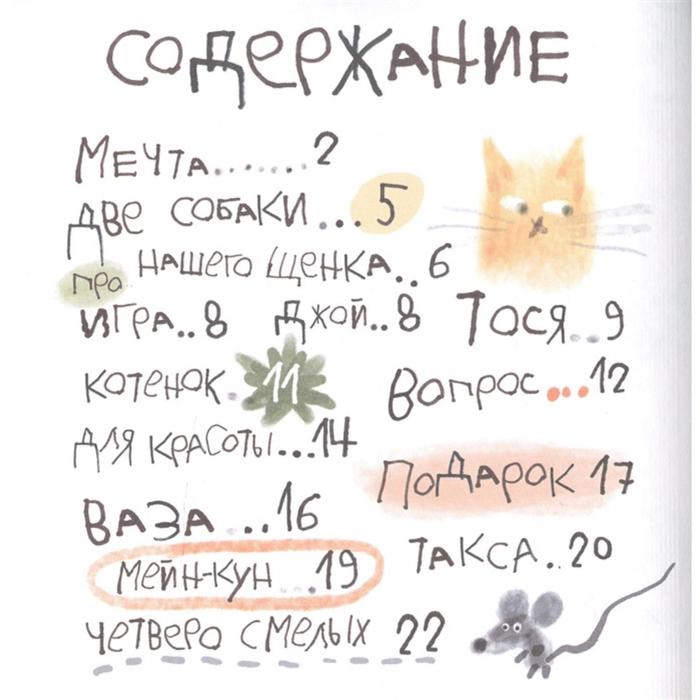 СОДЕРЖАНИЕ
МЕЧТА.......2
ДВЕ СОБАКИ...5
ПРО НАШЕГО ЩЕНКА..6
ИГРА..8 ДЖОЙ..8 ТОСЯ...9
КОТЕНОК..11 ВОПРОС...12
ДЛЯ КРАСОТЫ...14
ПОДАРОК 17
ВАЗА...16
ТАКСА..20
МЕЙН-КУН...19
ЧЕТВЕРО СМЕЛЫХ 22